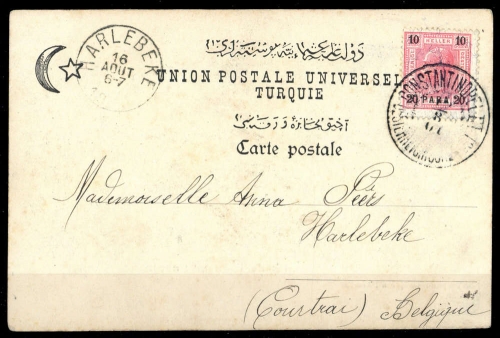 HARLEBEKE
16
AOUT
6-7
UNION POSTALE UNIVERSELLE
TURQUIE
Carte postale
10 HELLER 10
20 PARA 20
CONSTANTINOPEL
8
Mademoiselle Anna Piers
Harlebeke
(Courtrai) Belgique